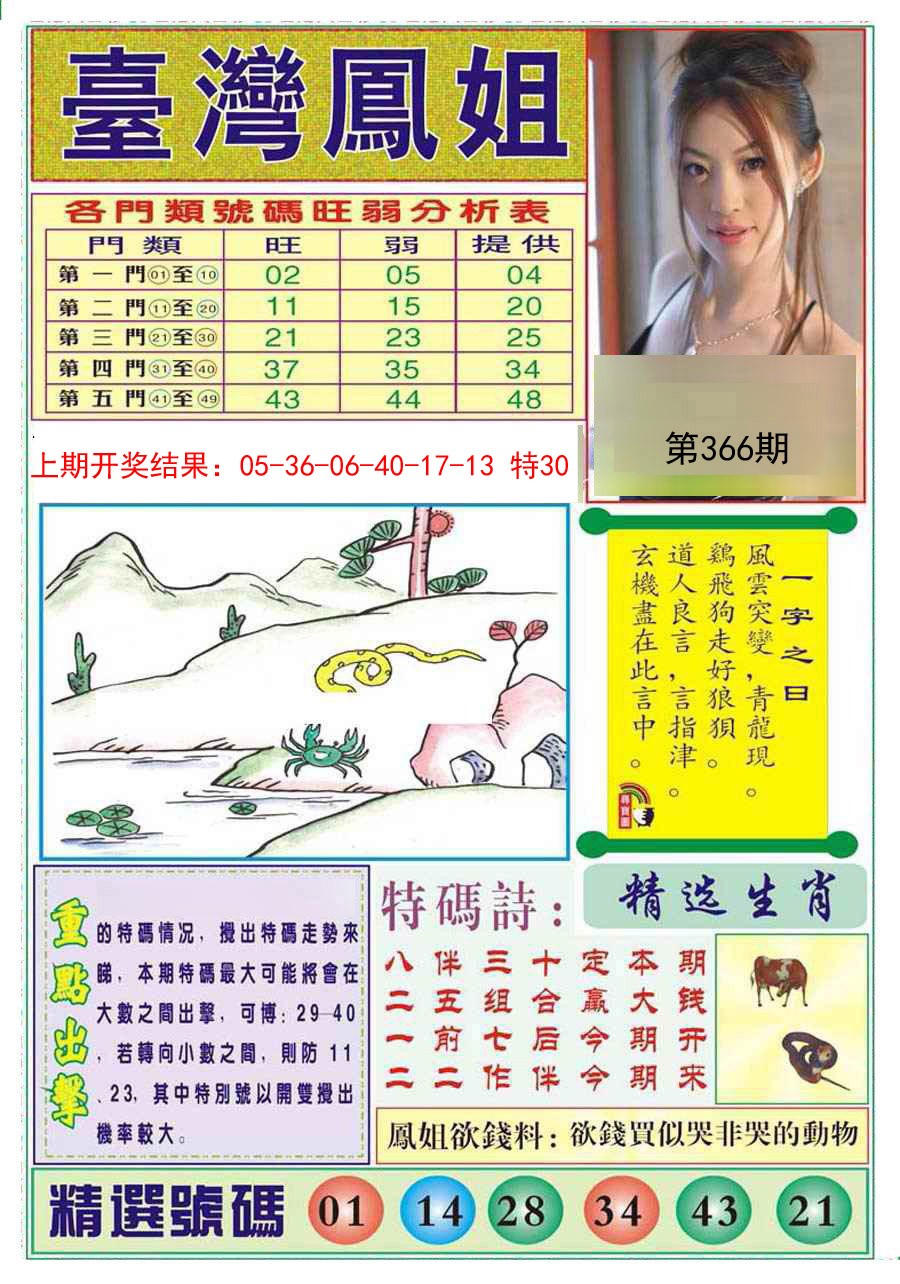 臺灣鳳姐
各門類號碼旺弱分析表
門類 旺 弱 提供
第一門01至10 02 05 04
第二門11至20 11 15 20
第三門21至30 21 23 25
第四門31至40 37 35 34
第五門41至49 43 44 48
第366期
上期开奖结果：05-36-06-40-17-13 特30
一字之曰
風雲突變，青龍現。
鷄飛狗走好狼狽。
道人良言，言指津。
玄機盡在此言中。
尋寶圖
重點出擊
的特碼情况，攪出特碼走勢來
睇，本期特碼最大可能將會在
大數之間出擊，可博：29-40
，若轉向小數之間，則防 11
、23，其中特別號以開雙攪出
機率較大。
特碼詩：
八伴三十定本期
二五组合贏大钱
一前七后今期开
二二作伴今期来
精选生肖
鳳姐欲錢料：欲錢買似哭非哭的動物
精選號碼 01 14 28 34 43 21